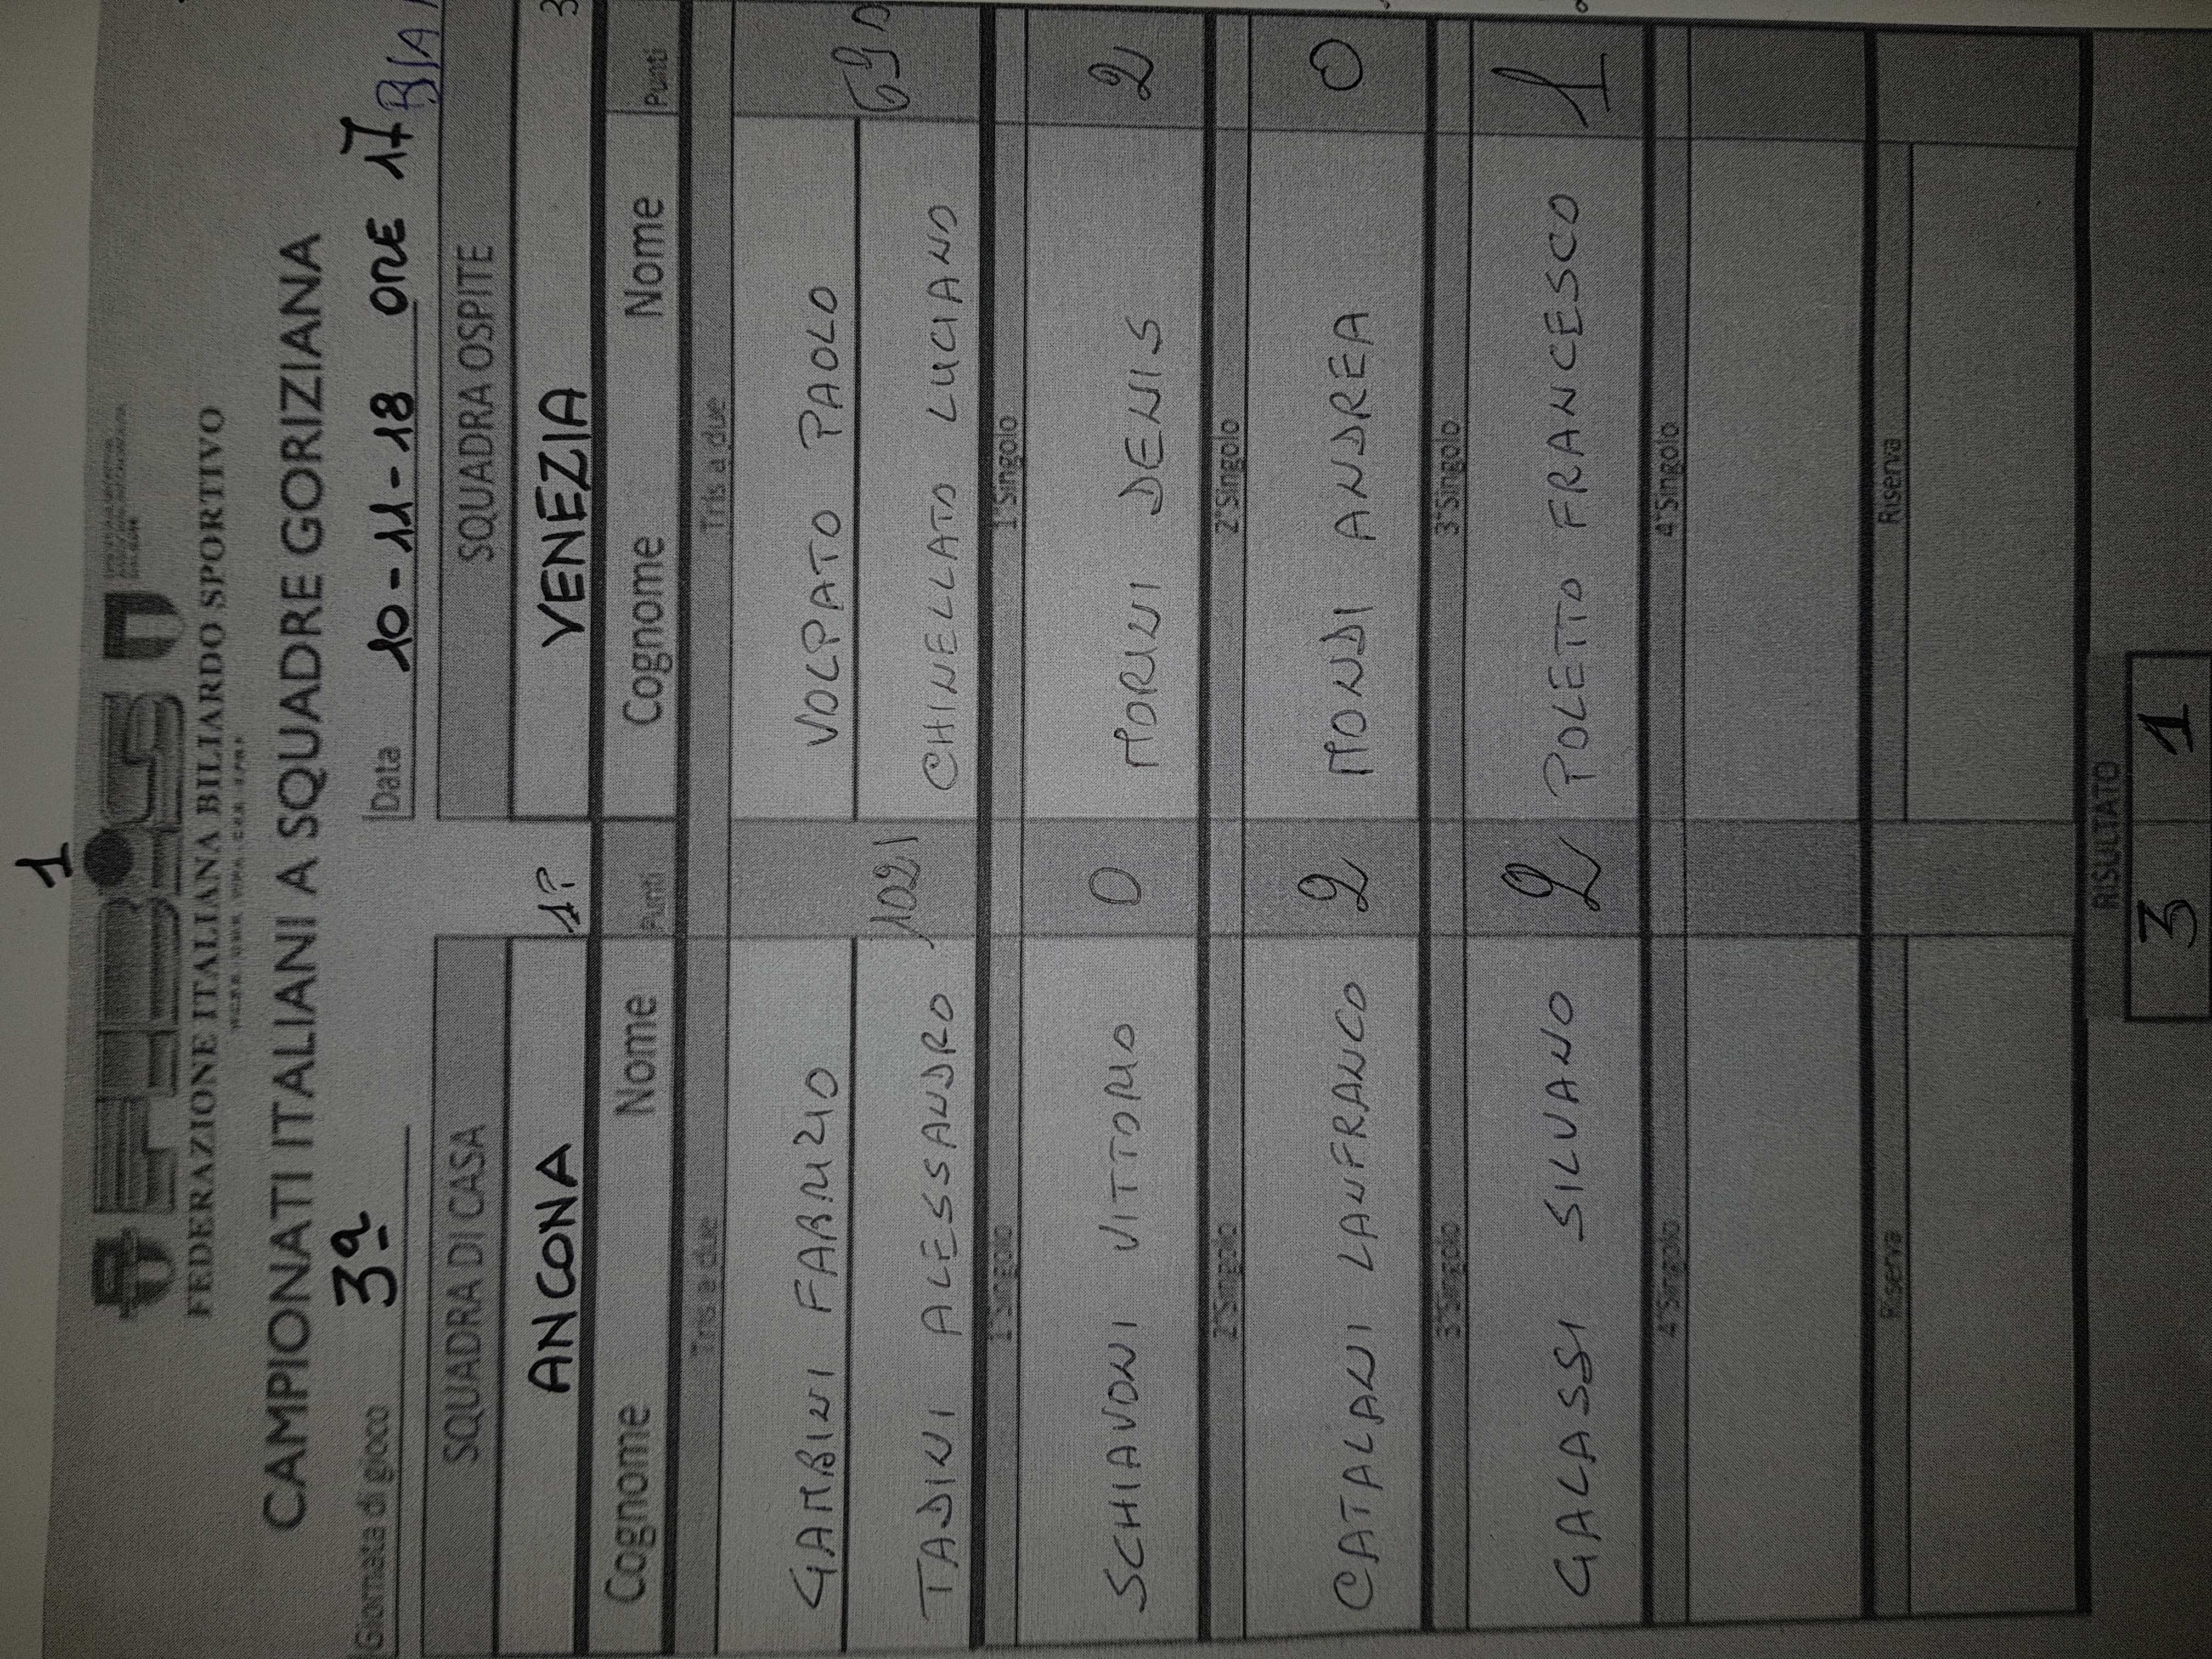 1
FEDERAZIONE ITALIANA BILIARDO SPORTIVO
CAMPIONATI ITALIANI A SQUADRE GORIZIANA
Giornata di gioco 3ª Data 10-11-18 ORE 17
SQUADRA DI CASA SQUADRA OSPITE
ANCONA 1? VENEZIA 3
Cognome Nome Punti Cognome Nome Punti
Tris a due Tris a due
GAMBINI FABRIZIO VOLPATO PAOLO
TADINI ALESSANDRO 1021 CHINELLATO LUCIANO
1°Singolo 1°Singolo
SCHIAVONI VITTORIO 0 MORINI DENIS 2
2°Singolo 2°Singolo
CATALANI LANFRANCO 2 MONDI ANDREA 0
3°Singolo 3°Singolo
GALASSI SILVANO 2 POLETTO FRANCESCO 1
4°Singolo 4°Singolo
Riserva Riserva
RISULTATO
3 1